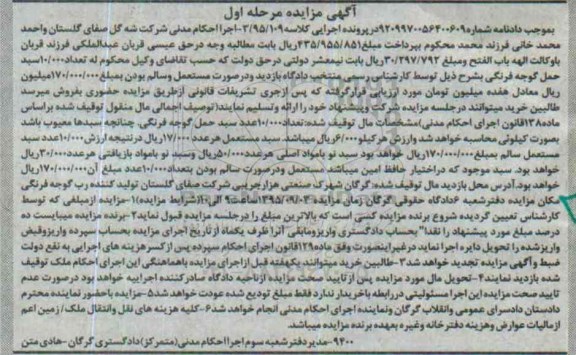 آگهی مزایده مرحله اول
بموجب دادنامه شماره ۹۲۰۹۹۷۰۰۵۶۴۰۰۶۰۹ در پرونده اجرایی کلاسه ۳/۹۵/۱۰۹-اجرا احکام مدنی شرکت شه گل صفای گلستان واحمد
محمد خانی فرزند محمد محکوم بپرداخت مبلغ ۴۳۵/۹۵۵/۸۵۱ ریال بابت مطالبه وجه در حق عیسی قربان عبدالملکی فرزند قربان
باوکالت الهه باب الفتح ومبلغ ۳۰/۲۹۷/۷۹۲ ریال بابت نیمعشر دولتی در حق دولت که حسب تقاضای وکیل محکوم له تعداد ۱۰/۰۰۰ سبد
حمل گوجه فرنگی بشرح ذیل توسط کارشناس رسمی منتخب دادگاه بازدید ودر صورت مستعمل وسالم بودن بمبلغ ۱۷۰/۰۰۰/۰۰۰ میلیون
ریال معادل هفده میلیون تومان مورد ارزیابی قرار گرفته که پس از جری تشریفات قانونی از طریق مزایده حضوری بفروش میرسد
طالبین خرید میتوانند در جلسه مزایده شرکت وپیشنهاد خود را ارائه وتسلیم نمایند(توصیف اجمالی مال منقول توقیف شده براساس
ماده ۱۳۸ قانون اجرای احکام مدنی)مشخصات مال توقیف شده:تعداد ۱۰/۰۰۰ عدد سبد حمل گوجه فرنگی، چنانچه سبدها معیوب باشد
بصورت کیلوئی محاسبه خواهد شد وارزش هر کیلو ۶/۰۰۰ ریال میباشد سبد مستعمل هر عدد ۱۷/۰۰۰ ریال در نتیجه ارزش ۱۰/۰۰۰ عدد سبد
مستعمل سالم بمبلغ ۱۷۰/۰۰۰/۰۰۰ ریال خواهد بود. سبد نو بامواد اصلی هر عدد ۵۰/۰۰۰ ریال وسبد نو بامواد بازیافتی هر عدد ۳۰/۰۰۰ ریال
خواهد بود. سبد موجود که در اختیار حافظ امین میباشد مستعمل ودر صورت سالم بودن بتعداد ۱۰/۰۰۰ عدد مبلغ آن ۱۷۰/۰۰۰/۰۰۰ ریال
خواهد بود.آدرس محل بازدید مال توقیف شده: گرگان شهرک صنعتی هزار جریبی شرکت صفای گلستان تولید کننده رب گوجه فرنگی
مکان مزایده دفتر شعبه ۶ دادگاه حقوقی گرگان زمان مزایده ۱۳۹۵/۰۹/۰۳ ساعت ۹ الی ۱۰(شرایط مزایده)۱-مزایده از مبلغی که توسط
کارشناس تعیین گردیده شروع برنده مزایده کسی است که بالاترین مبلغ را در جلسه مزایده قبول نماید ۲-برنده مزایده میبایست ده
درصد مبلغ مورد پیشنهاد را نقدا" بحساب دادگستری واریز ومابقی آنرا ظرف یکماه از تاریخ اجرای مزایده بحساب سپرده واریز وفیش
واریز شده را تحویل دایره اجرا نماید در غیر اینصورت وفق ماده ۱۲۹ قانون اجرای احکام سپرده پس از کسر هزینه های اجرایی به نفع دولت
ضبط وآگهی مزایده تجدید خواهد شد ۳-طالبین خرید میتوانند یکهفته قبل از اجرای مزایده باهماهنگی این اجرای احکام ملک توقیف
شده بازدید نمایند ۴-تحویل مال مورد مزایده پس از تایید صحت مزایده از ناحیه دادگاه صادر کننده اجراییه خواهد بود در صورت عدم
تایید صحت مزایده این اجرا مسئولیتی در رابطه باخریدار ندارد فقط مبلغ تودیع شده عودت خواهد شد ۵-مزایده باحضور نماینده محترم
دادستان دادسرای عمومی وانقلاب گرگان ونماینده اجرای احکام مدنی انجام خواهد شد ۶-کلیه هزینه های نقل وانتقال ملک/ زمین اعم
از مالیات عوارض وهزینه دفترخانه وغیره بعهده برنده مزایده میباشد.
۹۴۰۰-مدیر دفتر شعبه سوم اجرا احکام مدنی(متمرکز) دادگستری گرگان-هادی متن